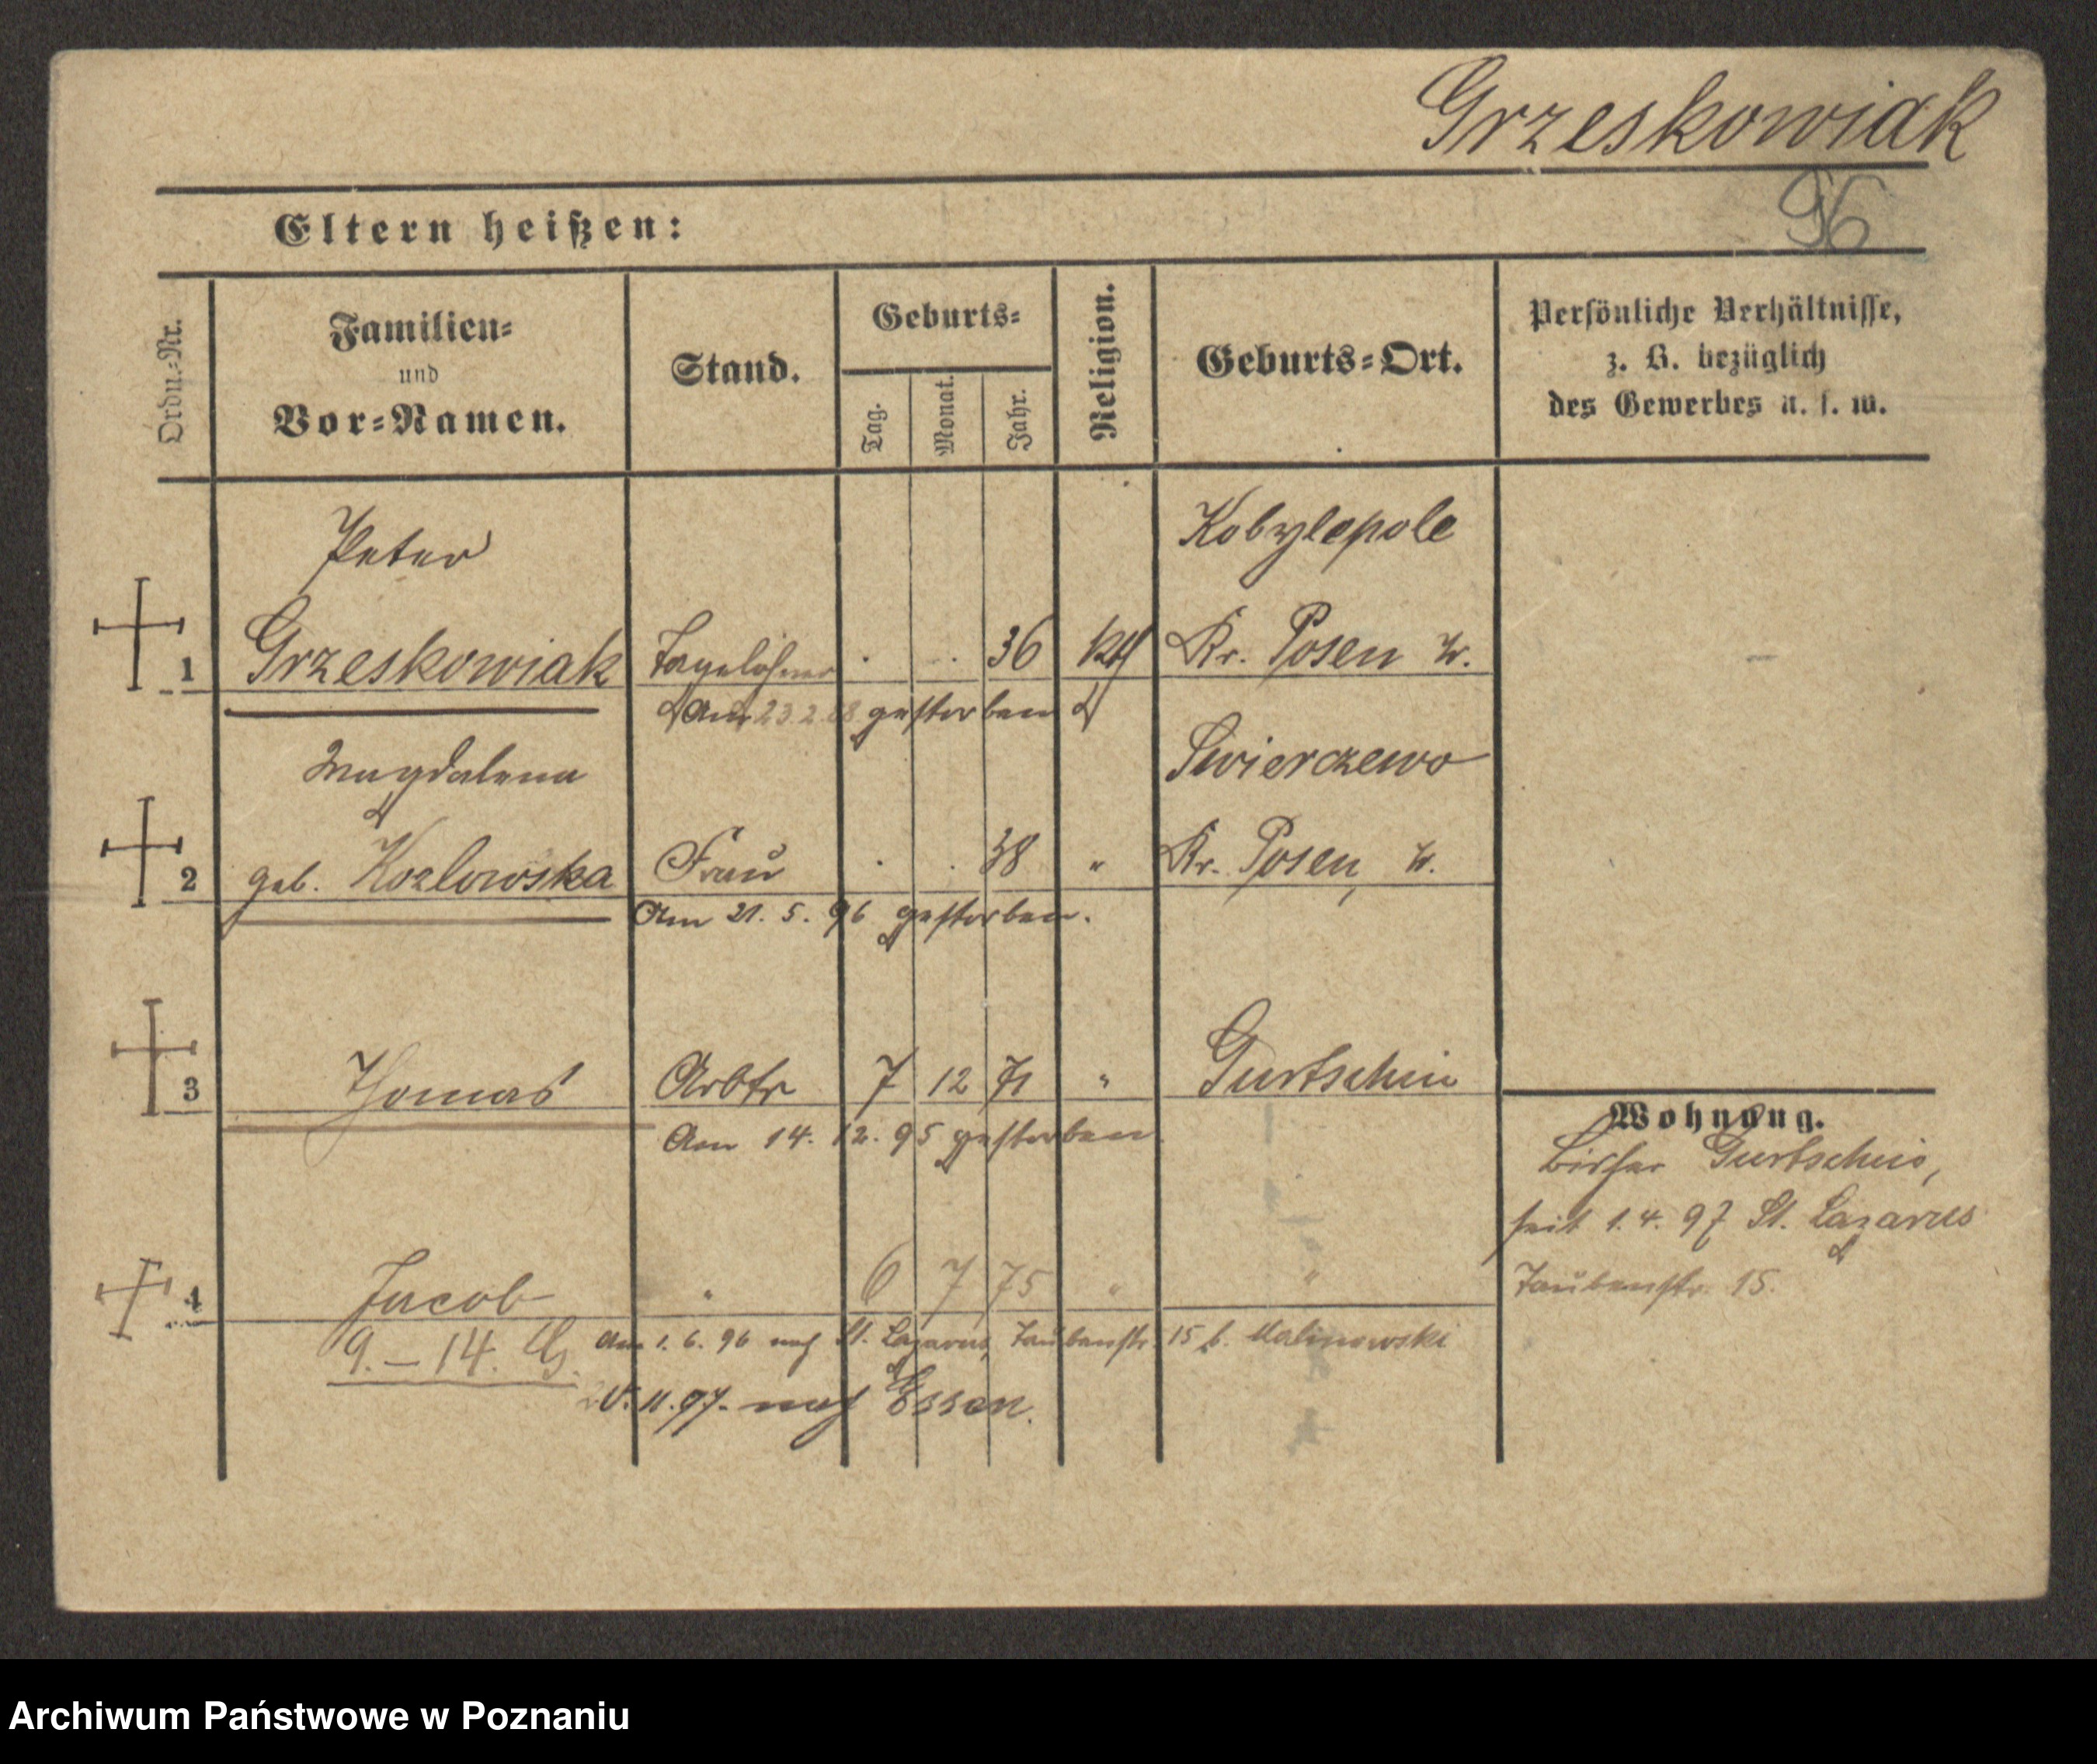 Grzeskowiak
96
Eltern heißen:
Ordn.-Nr.
Familien-
und
Vor-Namen.
Stand.
Geburts-
Tag.
Monat.
Jahr.
Religion.
Geburts-Ort.
Persönliche Verhältnisse,
z. B. bezüglich
des Gewerbes u. s. w.
Peter
Kobylepole
1 Grzeskowiak Tagelöhner . . 36 kth Kr. Posen W. –
Am 23.2. gestorben
Magdalena
Swierczewo
2 geb. Kozlowska Frau . . 38 " Kr. Posen, W.
Am 21. 5. 96 gestorben.
3 Thomas Arbtr 7 12 71 " Gurtschin
Am 14. 12. 95 gestorben
Wohnung.
Bisher Gurtschin,
seit 1.4. 97 St. Lazarus
Taubenstr. 15.
4 Jacob " 6 7 75 " "
Am 1. 6. 96 nach St. Lazarus, Taubenstr. 15 b. Malinowski
9. – 14. G.
V. 11. 97. nach Essen.
Archiwum Państwowe w Poznaniu